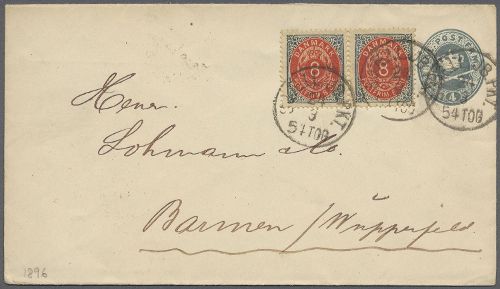 DANMARK DANMARK POST FRIM
8 8 4
54 TOG 54 TOG
Herrn.
Lohmann & Co.
Barmen / Wupperfeld.
1896